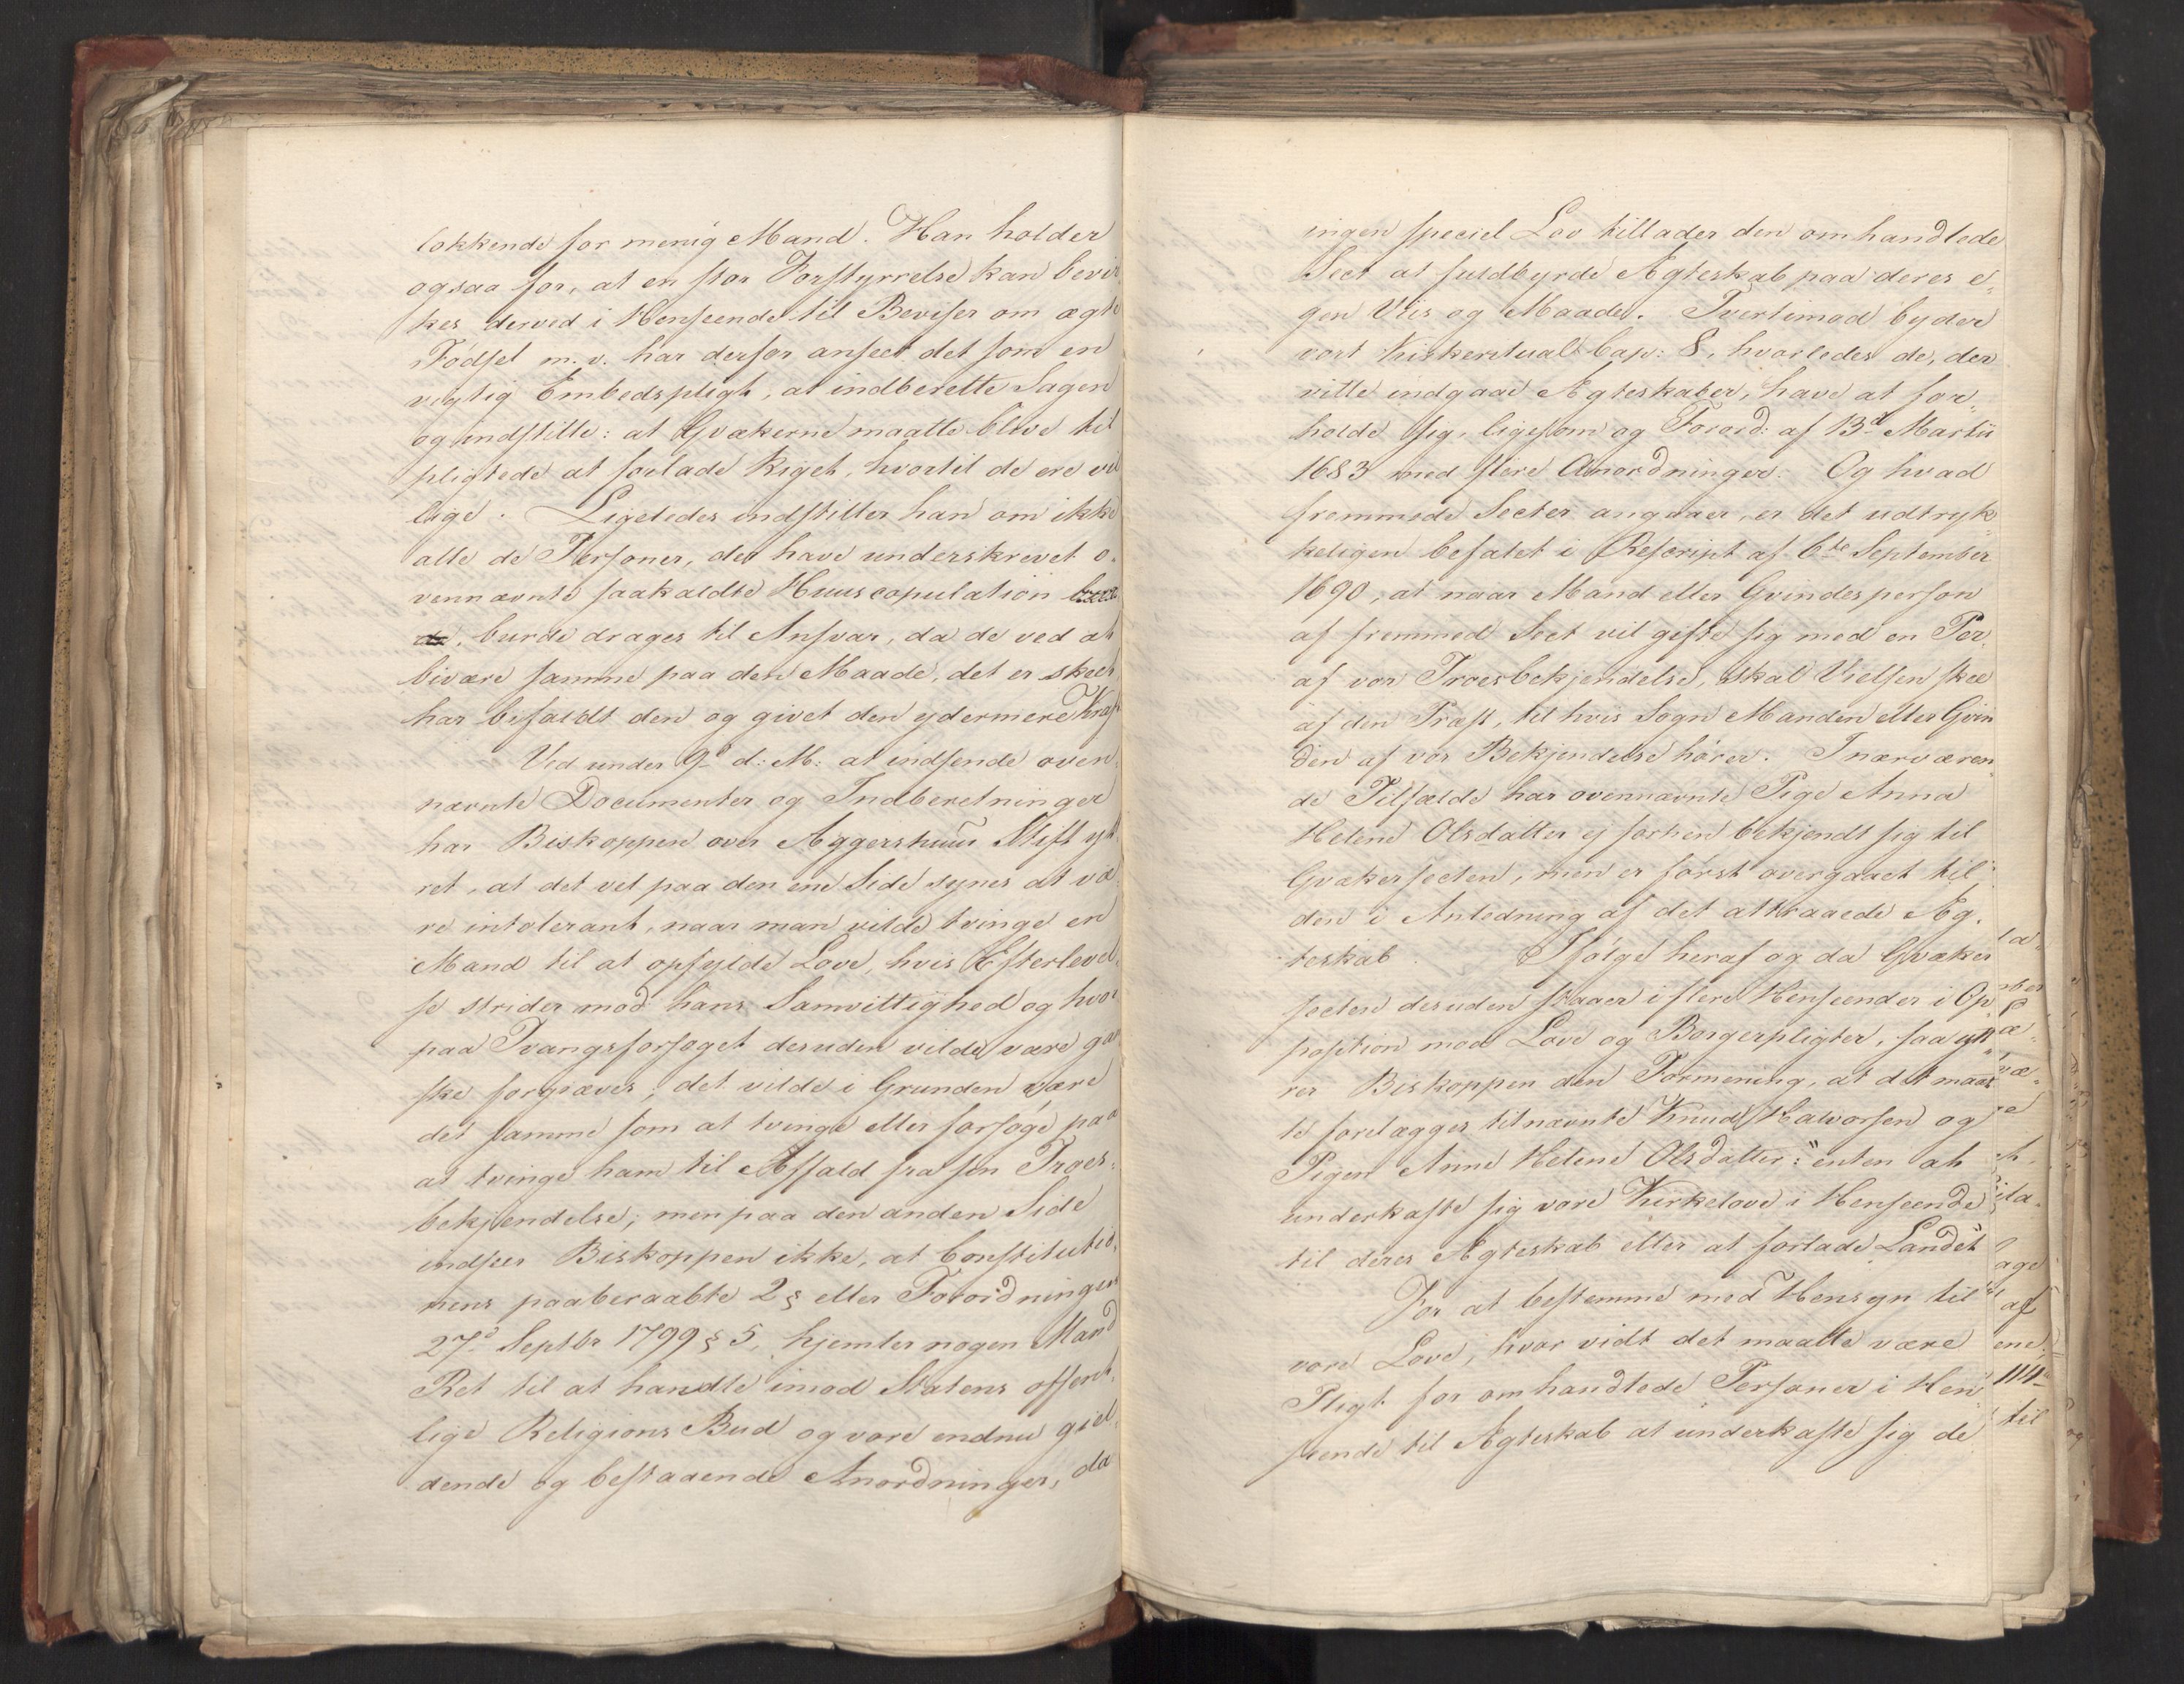 lokkende for menig Mand. Han holder
ogsaa for, at en stor Forstyrrelse kan bevir„
kes derved i Henseende til Beviser om ægte
Fødsel m. v. har derfor anseet det som en
vigtig Embedspligt, at indberette Sagen
og indstille: at Qvækerne maatte blive til
pligtede at forlade Riget, hvortil de ere vil
lige. Ligeledes indstiller han om ikke
alle de Personer, der have underskrevet o„
vennævnte saakaldte Huuscopulation
burde drages til Ansvar, da de ved at
bivære samme paa den Maade, det er skeet
har befaldt den og givet den ydermere Kraft
Ved under 9d d: M: at indsende oven„
nævnte Documenter og Indberetninger
har Biskoppen over Aggershuus Stift yt
ret, at det vel paa den ene Side synes at væ
re intolerant, naar man vilde tvinge en
Mand til at opfylde Love, hvis Efterlevel„
se strider mod hans Samvittighed og hvor
paa Tvangsforsøget desuden vilde være gan
ske forgjæves; det vilde i Grunden være
det samme som at tvinge eller forsøge paa
at tvinge ham til Affald fra sin Troes„
bekjendelse; men paa den anden Side
indseer Biskoppen ikke, at Constitutio„
nens paaberaabte 2 § eller Forordningen
27d Septbr 1799 § 5, hjemler nogen Mand
Ret til at handle imod Statens offent„
lige Religions Bud og vore endnu giel„
dende og bestaaende Anordninger, da
ingen speciel Lov tillader den omhandlede
Sect at fuldbyrde Ægteskab paa deres e„
gen Viis og Maade. Tvertimod byder
vort Kirkeritual Cap: 8, hvorledes de, der
ville indgaae Ægteskaber, have at for„
holde sig, ligesom og Forord: af 13d Martii
1683 med flere Anordninger. Og hvad
fremmede Secter angaaer, er det udtryk„
keligen befalet i Rescript af 6te September
1690, at naar Mand eller Qvindesperson
af fremmed Sect vil gifte sig med en Per„
af vor Troesbekjendelse, skal Vielsen skee
af den Præst, til hvis Sogn Manden eller Qvin
den af vor Bekjendelse hører. I nærværen„
de Tilfælde har ovennævnte Pige Anna
Helene Olsdatter ej forhen bekjendt sig til
Qvækersecten, men er først overgaaet til
den i Anledning af det attraaede Æg„
teskab. Ifølge heraf og da Qvæker
secten desuden staaer i flere Henseender i Op„
position mod Love og Borgerpligter, saa ytt„
rer Biskoppen den Formening, at det maat
te forelægges tilnævnte Knud Halvorsen og
Pigen Anne Helene Olsdatter: "enten at
underkaste sig vore Kirkelove i Henseende
til deres Ægteskab eller at forlade Landet"
For at bestemme med Hensyn til
vore Love, hvor vidt det maatte være
Pligt for omhandlede Personer i Hen„
seende til Ægteskab at underkaste sig de